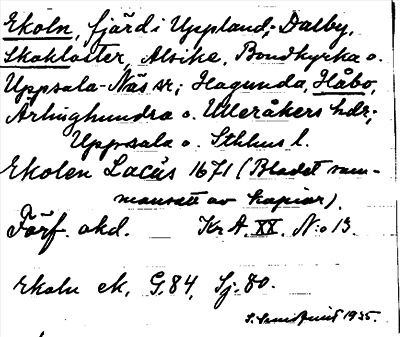 Ekoln, fjärd i Uppland; Dalby,
Skokloster, Alsike, Bondkyrka o.
Uppsala-Näs sr; Hagunda, Håbo,
Ärlinghundra o. Ulleråkers hdr;
Uppsala o. Sthlms l.
Ekolen Lacus 1671 (Bladet sam-
mansatt av kopior).
Förf. okd. Kr A. XX. N:o 13.
Ekoln ek, G.84, Sj. 80.
1935.